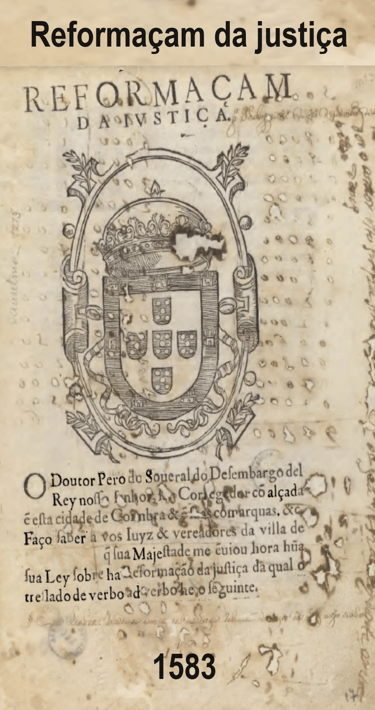 Reformaçam da justiça
REFORMAÇAM
DA IVSTIÇA.
O Doutor Pero do Soueral do Desembargo del
Rey nosso senhor, & Corregedor cõ alçada
ẽ esta cidade de Coimbra & comarquas. &c
Faço saber a vos Iuyz & vereadores da villa de
q̃ sua Majestade me ẽuiou hora hũa
sua Ley sobre ha Reformação da justiça da qual o
treslado de verbo ad verbo he, o seguinte.
1583